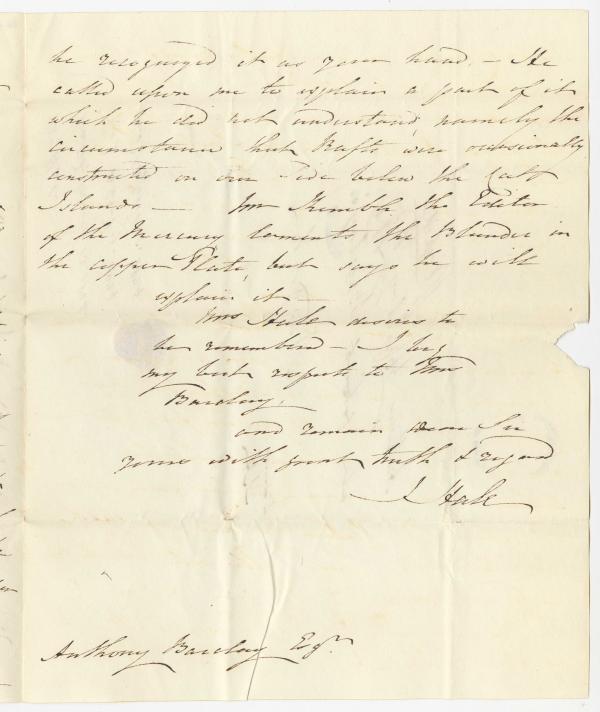 he recognized it as your hand. – He
called upon me to explain a part of it
which he did not understand, namely the
circumstance that Rafts were occasionally
constructed on our side below the
Islands — Mr Kimble the Editor
of the Mercury laments the Blunder in
the copper Plate, but says he will
explain it —
Mrs Hale desires to
be remembered – I beg
my best respects to Mrs
Barclay,
and remain Dear Sir
yours with great truth & regard
J Hale
Anthony Barclay Esqr.